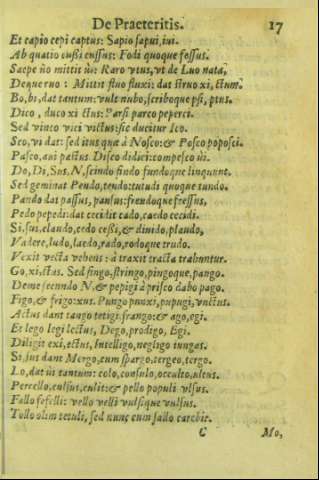 De Praeteritis. 17
Et capio cepi captus: Sapio sapui, iui.
Ab quatio cußi cussus: Fodi quoque fessus.
Saepe ùo mittit ùi: Raro vtus, vt de Luo nata,
Deque ruo: Mittit fluo fluxi: dat struo xi, ctum.
Bo, bi, dat tantum: vult nubo, scriboque psi, ptus.
Dico, duco xi ctus: Parsi parco peperci.
Sed vinco vici victus: sic ducitur Ico.
Sco, vi dat: sed itus quae à Nosco: & Posco poposci.
Pasco, aui pastus Disco didici: compesco ùi.
Do, Di, Sus. N, scindo findo fundoque linquunt.
Sed geminat Pendo, tendo: tutudi quoque tundo.
Pando dat passus, pansus: frendoque fressus,
Pedo pepedi: dat cecidit cado, caedo cecidi.
Si, sus, claudo, cedo ceßi, & diuido, plaudo,
Vadere, ludo, laedo, rado, rodoque trudo.
Vexit vecta vehens: à traxit tracta trahuntur.
Go, xi, ctas. Sed fingo, stringo, pingoque, pango.
Deme secundo N, & pepigi à prisco dabo pago.
Figo, & frigo: xus. Pungo punxi, pupugi, vnctus.
Actus dant tango tetigi, frango: & ago, egi.
Et lego legi lectus, Dego, prodigo, Egi.
Diligit exi, ectus, Intelligo, negligo iungas.
Si, sus dant Mergo, cum spargo, tergeo, tergo.
Lo, dat ùi tantum: colo, consulo, occulto, ultus.
Percello, culsus, culit: & pello populi vlsus.
Fallo fefelli: vello velli vulsique vulsus.
Tollo olim tetuli, sed nunc eum fallo carebit.
C Mo,